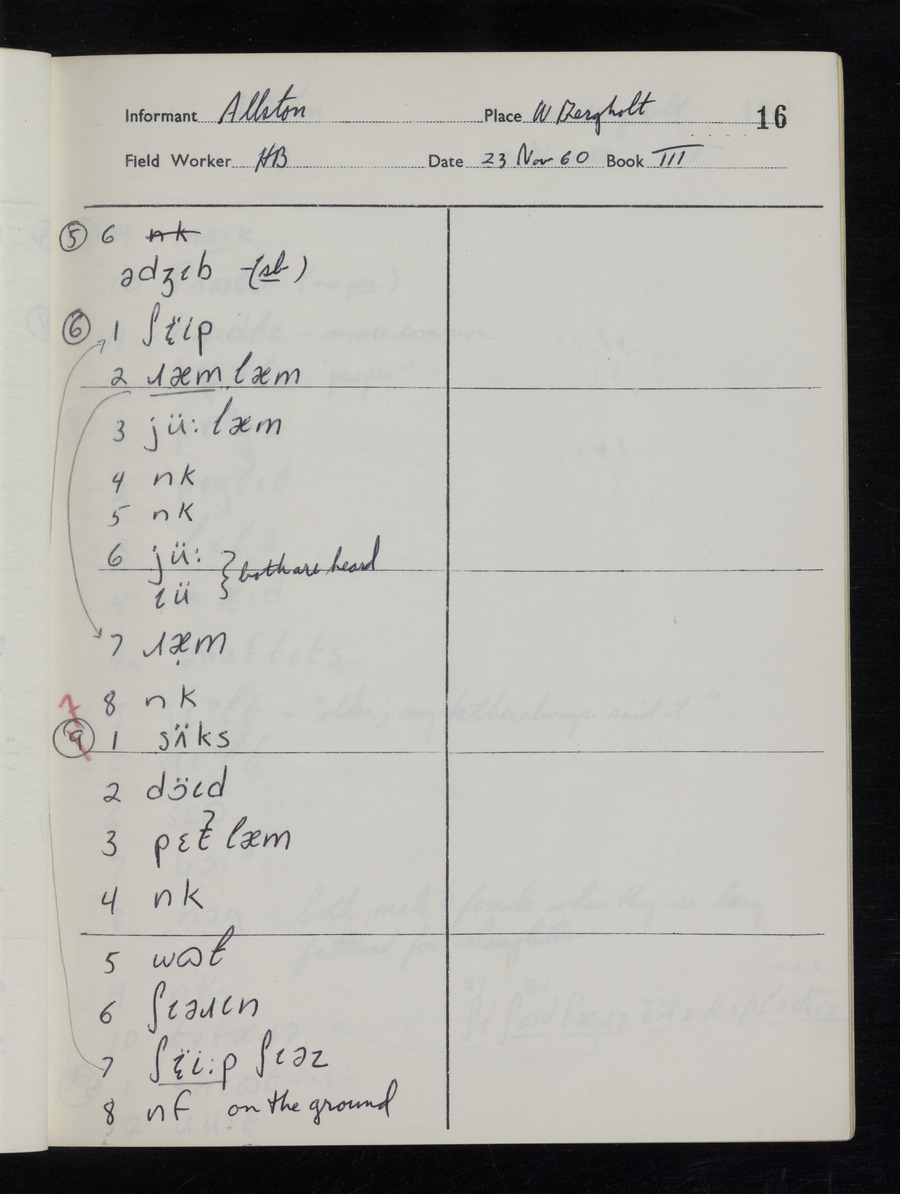 Informant Allston Place W Bergholt 16
Field Worker HB Date 23 Nov 60 Book III
⑤ 6 nk
ədʒɪb (sb)
⑥ 1 ʃɪ̈ip
2 ɹæm læm
3 jü: læm
4 nk
5 nk
6 jü: } both are heard
ɪü
7 ɹæ̣m
8 nk
7
⑨ 1 sʌ̈ks
2 dɔ̈ɪd
3 pɛtˀ læm
4 nk
5 wɷt
6 ʃɪəɹɪn
7 ʃɪ̈i:p ʃɪəz
8 nf on the ground